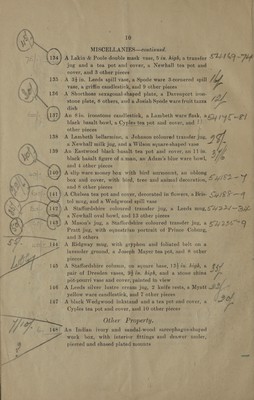 18
MISCELLANIES—continued.
134 A Lakin & Poole double mask vase, 5 in. high, a transfer
jug and a tea pot and cover, a Newhall tea pot and
cover, and 8 other pieces
135 A 3½ in. Leeds spill vase, a Spode ware 3-cornered spill
vase, a griffin candlestick, and 9 other pieces
136 A Shorthose hexagonal-shaped plate, a Davenport iron-
stone plate, 6 others, and a Josiah Spode ware fruit tazza
dish
137 An 8 in. ironstone candlestick, a Lambeth ware flask, a
black basalt bowl, a Cyples tea pot and cover, and 11
other pieces
138 A Lambeth bellarmine, a Johnson coloured transfer jug,
a Newhall milk jug, and a Wilson square-shaped vase
139 An Eastwood black basalt tea pot and cover, an 11 in.
black basalt figure of a man, an Adam's blue ware bowl,
and 4 other pieces
140 A slip ware money box with bird surmount, an oblong
box and cover, with bird, tree and animal decoration,
and 6 other pieces
141 A Chelsea tea pot and cover, decorated in flowers, a Bris-
tol mug, and a Wedgwood spill vase
142 A Staffordshire coloured transfer jug, a Leeds mug,
a Newhall oval bowl, and 13 other pieces
143 A Mason's jug, a Staffordshire coloured transfer jug, a
Pratt jug, with equestrian portrait of Prince Coburg,
and 3 others
144 A Ridgway mug, with gryphon and foliated belt on a
lavender ground, a Joseph Mayer tea pot, and 8 other
pieces
145 A Staffordshire column, on square base, 12½ in. high, a
pair of Dresden vases, 9½ in. high, and a stone china
pot-pourri vase and cover, painted in view
146 A Leeds silver lustre cream jug, 2 knife rests, a Myatt
yellow ware candlestick, and 7 other pieces
147 A black Wedgwood inkstand and a tea pot and cover, a
Cyples tea pot and cover, and 10 other pieces
Other Property.
148 An Indian ivory and sandal-wood sarcophagus-shaped
work box, with interior fittings and drawer under,
pierced and chased plated mounts